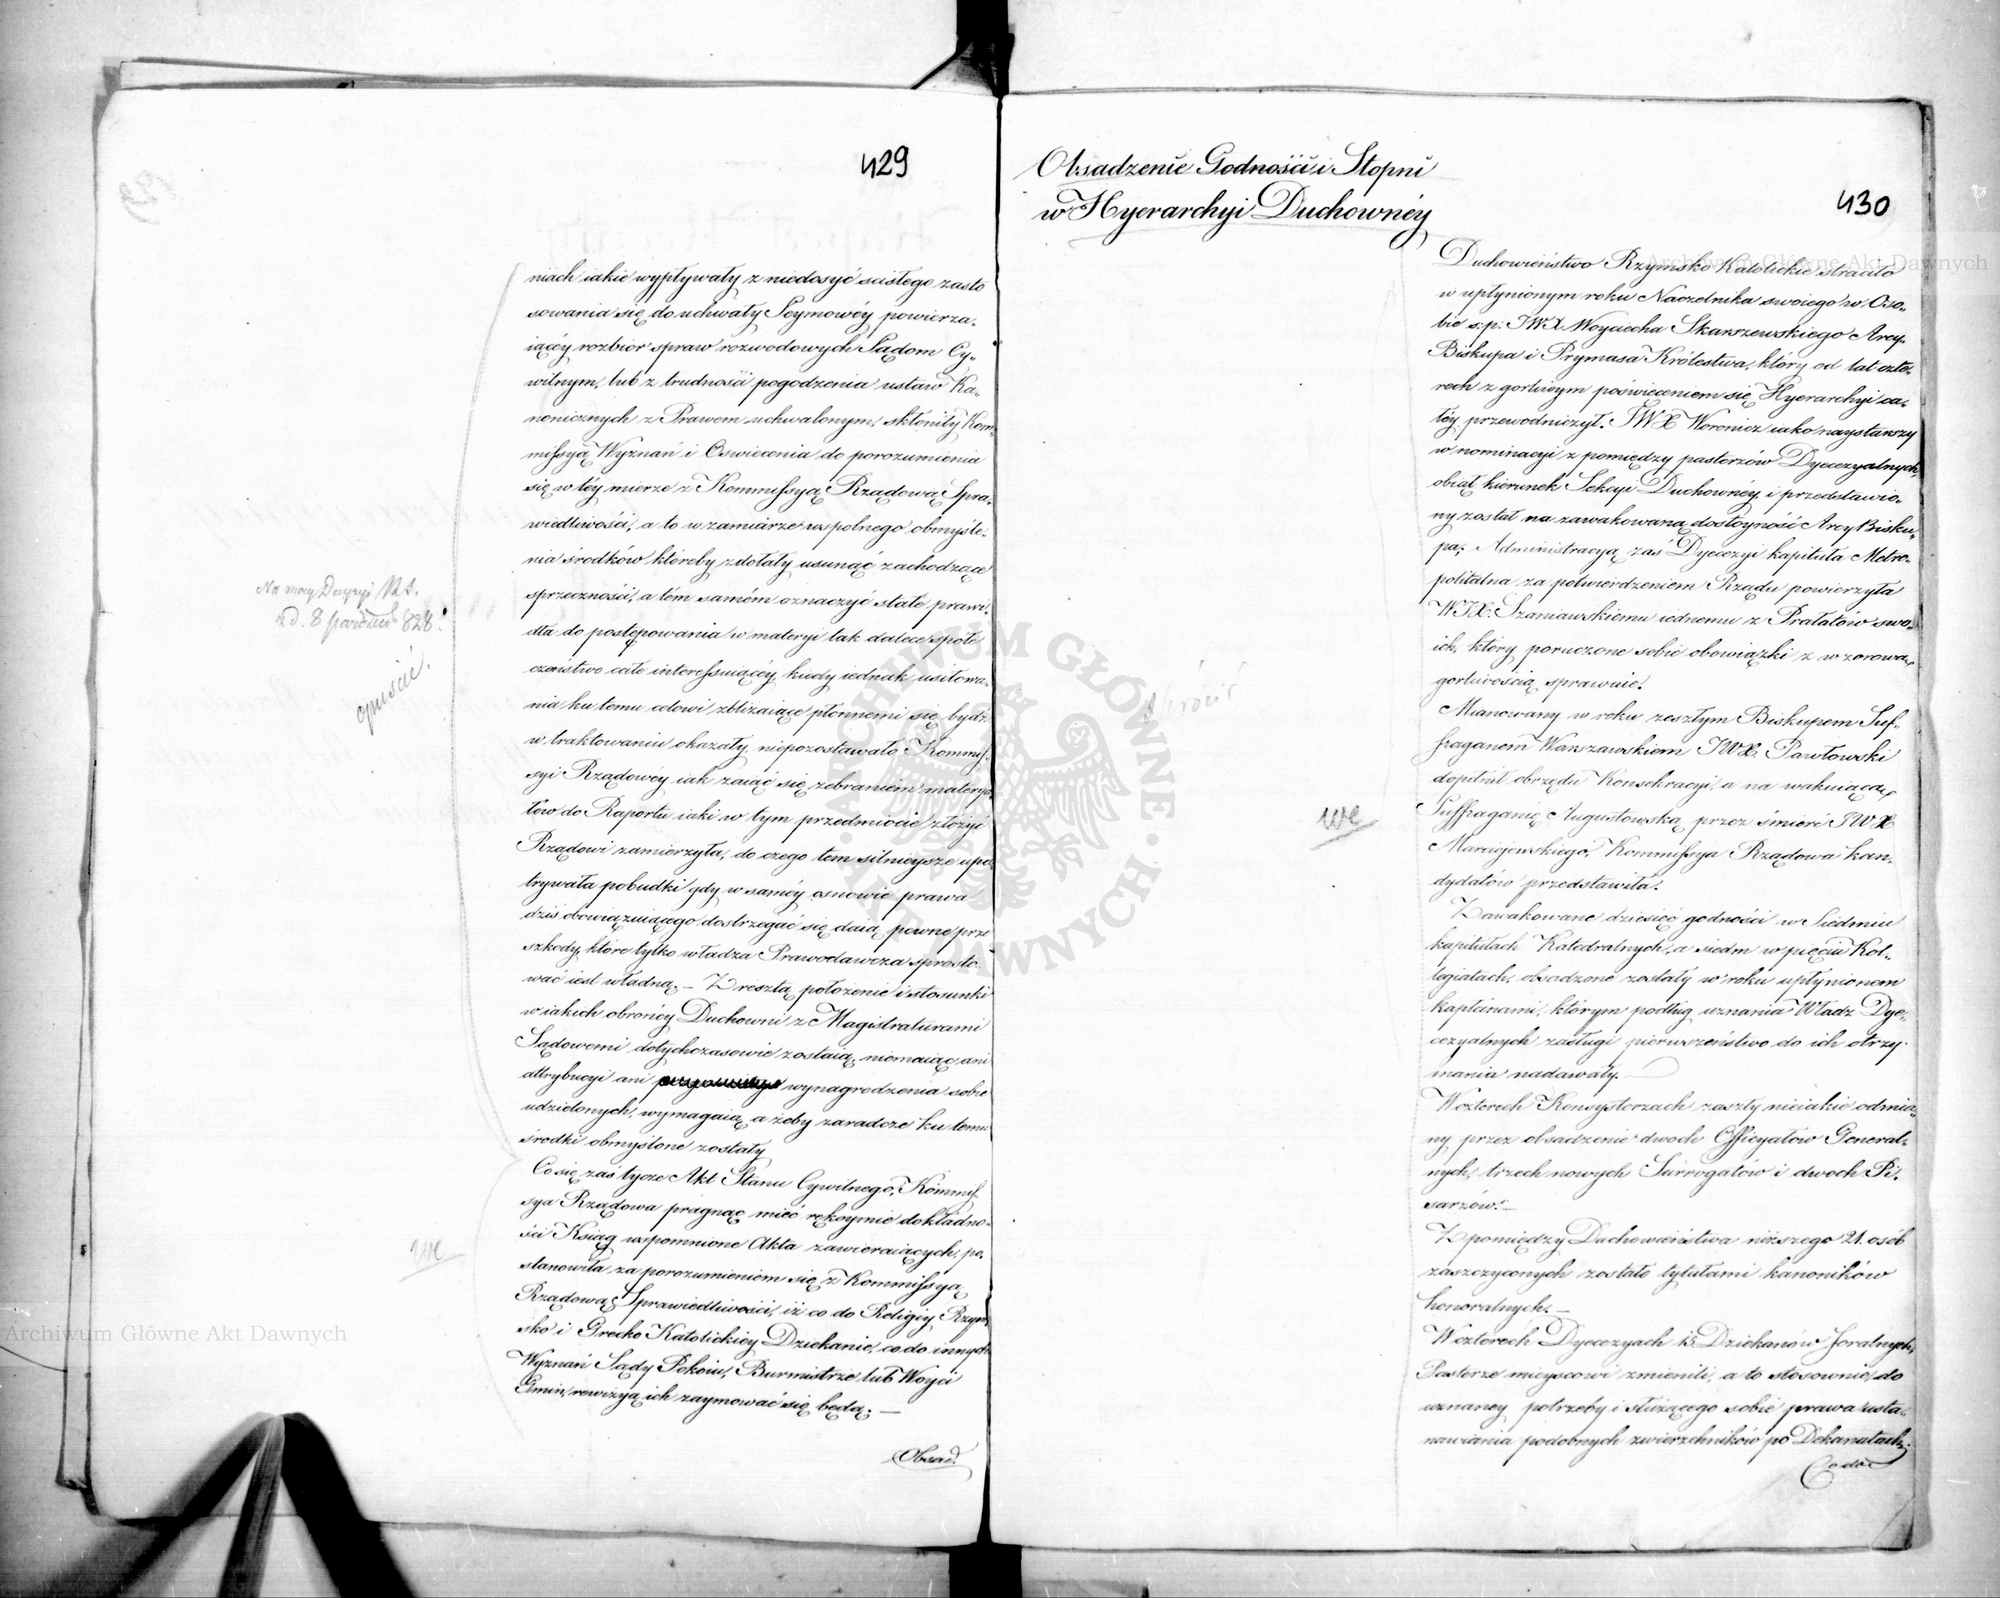 429
niach iakie wypływały z niedosyć ścisłego zasto
sowania się do uchwały Seymowéy powierza-
iącéy rozbiór spraw rozwodowych Sądom Cy-
wilnym, lub z trudności pogodzenia ustaw Ka-
nonicznych z Prawem uchwalonym, skłoniły Kom-
missyą Wyznań i Oświecenia do porozumienia
się w téy mierze z Kommissyą Rządową Spra-
wiedliwości, a to w zamiarze wspolnego obmyśle-
nia środków któreby zdołały usunąć zachodzące
sprzeczności, a tém samém oznaczyć stałe prawi-
dła do postępowania w materyi tak dalece społe
czeństwo całe interessuiącéy, kiedy iednak usiłowa-
nia ku temu celowi zbliżaiące płonnemi się bydź
w traktowaniu okazały, niepozostawało Kommis-
syi Rządowéy iak zaiąć się zebraniem materya
łów do Raportu iaki w tym przedmiocie złożyć
Rządowi zamierzyła, do czego tem silnieysze upa-
trywała pobudki gdy w saméy osnowie prawa
dziś obowiązuiącego dostrzegać się daią pewne prze
szkody, które tylko władza Prawodawcza sprosto-
wać iest władną. — Z resztą położenie i stosunki
w iakich obrońcy Duchowni z Magistraturami
Sądowemi dotychczasowie zostaią, niemaiąc ani
attrybucyi ani wynagrodzenia sobie
udzielonych, wymagaią, ażeby zaradcze ku temu
środki obmyślone zostały
Co się zaś tycze Akt Stanu Cywilnego, Kommis-
sya Rządowa pragnąc mieć rękoymie dokładno-
ści Ksiąg wspomnione Akta zawieraiących, po-
stanowiła za porozumieniem się z Kommissyą
Rządową Sprawiedliwości, iż co do Religiy Rzym-
sko i Grecko Katolickiey Dziekanie, co do innych
Wyznań Sądy Pokoiu, Burmistrze lub Woyci
Gmin, rewizyą ich zaymować się będą. —
Obsad.
Na mocy Decyzyi R.S.
z d. 8 828.
opuścić.
we
Obsadzenie Godności i Stopni
w Hyerarchyi Duchownéy
430
Duchowieństwo Rzymsko Katolickie straciło
w upłynionym roku Naczelnika swoiego w Oso-
bie s.p. JWX Woyciecha Skarszewskiego Arcy-
Biskupa i Prymasa Królestwa, który od lat czte-
rech z gorliwym poświęceniem się Hyerarchyi ca-
łéy przewodniczył. JWX Woronicz iako naystarszy
w nominacyi z pomiędzy pasterzów Dyecezyalnych,
obiął kierunek Sekcyi Duchownéy i przedstawio-
ny został na zawakowaną dostoyność Arcy Bisku-
pa; Administracyą zaś Dyecezyi kapituła Metro-
politalna za potwierdzeniem Rządu powierzyła
WJX. Szaniawskiemu iednemu z Prałatów swo-
ich, który poruczone sobie obowiązki z wzorową
gorliwością sprawuie.
Mianowany w roku zeszłym Biskupem Suf-
fraganem Warszawskiem JWX. Pawłowski
dopełnił obrzędu Konsekracyi, a na wakuiącą
Suffraganię Augustowską, przez śmierć JWX
Marcijewskiego, Kommissya Rządowa kan-
dydatów przedstawiła.
Zawakowane dziesięć godności w Siedmiu
kapitułach Katedralnych, a siedm w pięciu Kol-
legiatach, obsadzone zostały w roku upłynionem
kapłanami, którym podług uznania Władz Dye-
cezyalnych zasługi pierwszeństwo do ich otrzy-
mania nadawały. —
W czterech Konsystorzach zaszły nieiakie odmia-
ny przez obsadzenie dwoch Officyałów General-
nych, trzech nowych Surrogatów i dwoch Pi-
sarzów. —
Z pomiędzy Duchowieństwa niższego 21. osób
zaszczyconych zostało tytułami kanoników
honoralnych. —
W czterech Dyecezyach 15. Dziekanów foralnych,
Pasterze mieyscowi zmienili, a to stosownie do
uznaney potrzeby i służącego sobie prawa usta-
nawiania podobnych zwierzchników po Dekanatach;
Co do
we
ARCHIWUM GŁÓWNE AKT DAWNYCH
Archiwum Główne Akt Dawnych
Archiwum Główne Akt Dawnych